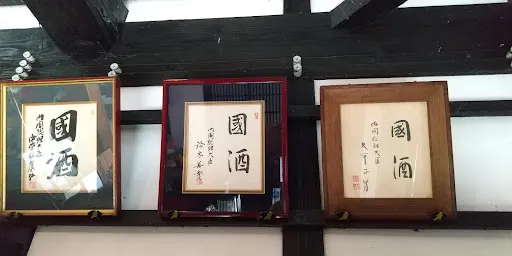 國酒
内閣総理大臣
中曽根康弘
國酒
内閣総理大臣
鈴木善幸
國酒
内閣総理大臣
大平正芳